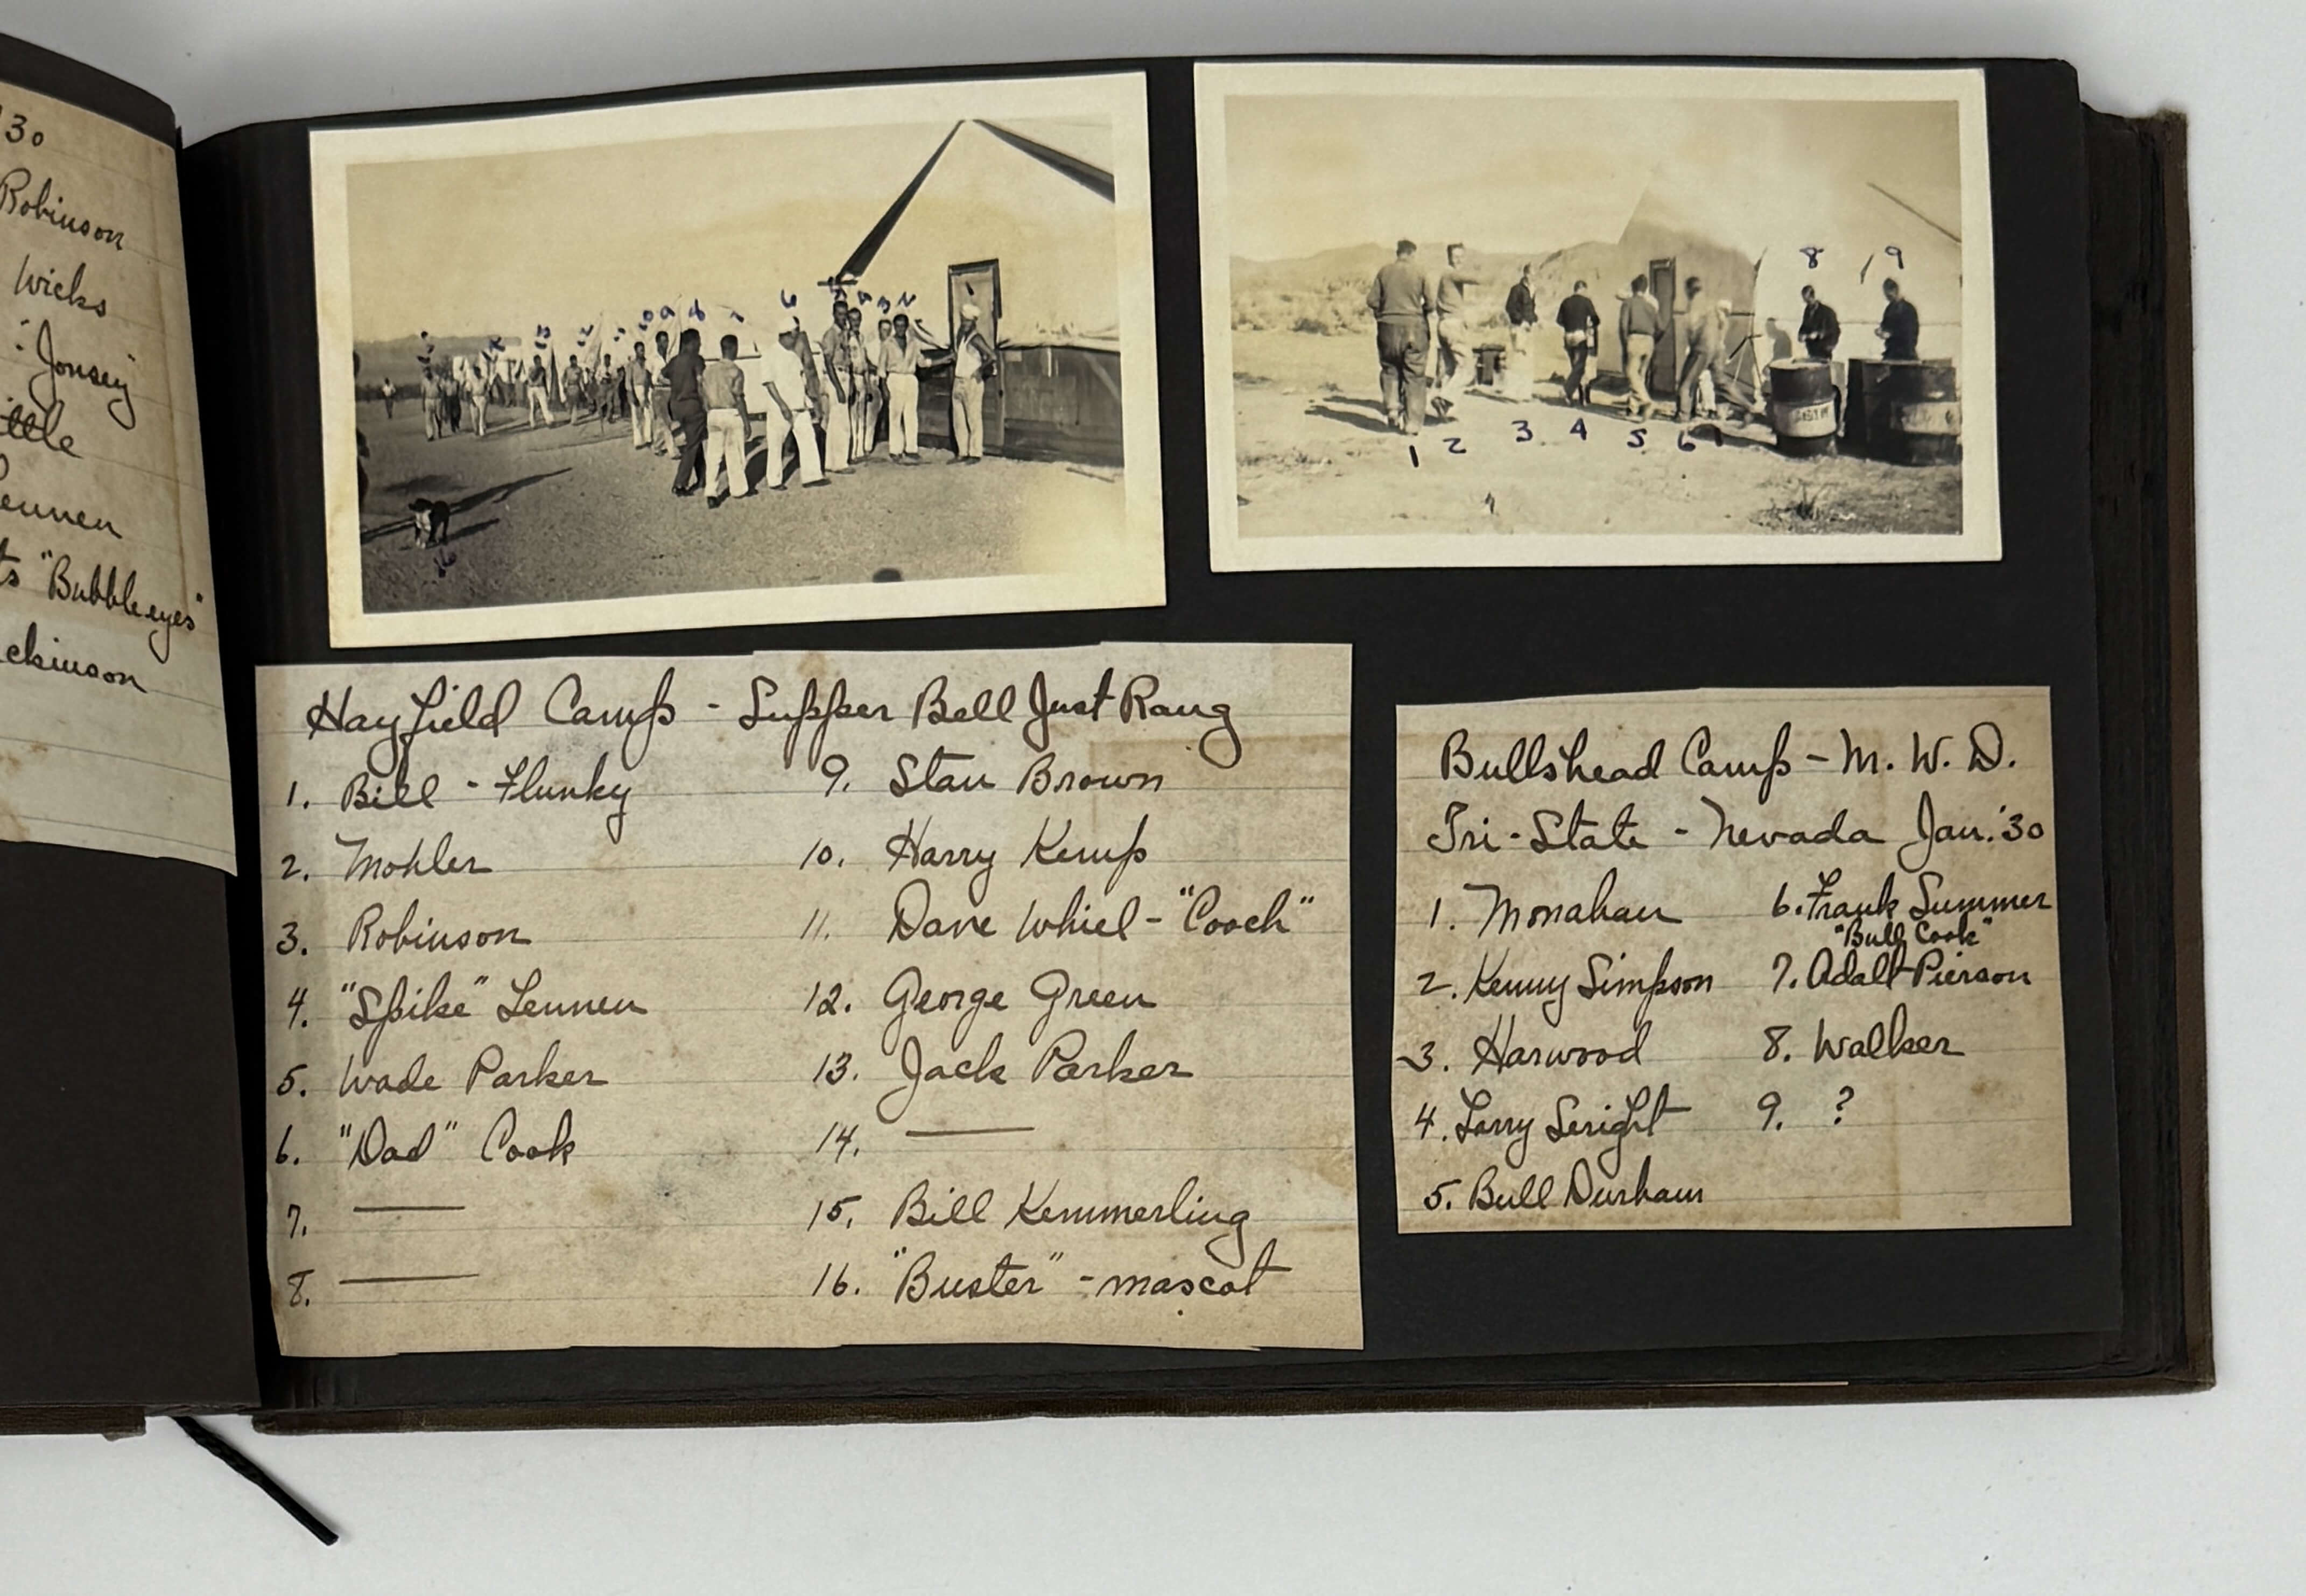 '30
Robinson
Wicks
Jonsey
ttle
ennen
ts "Bubbleeyes"
ckinson
1
2
3
4
5
6
8
9
16
Hayfield Camp - Supper Bell Just Rang
1. Bill - Flunky
2. Mohler
3. Robinson
4. "Spike" Lennen
5. Wade Parker
6. "Dad" Cook
7. —
8. —
9. Stan Brown
10. Harry Kemp
11. Dave Whiel - "Cooch"
12. George Green
13. Jack Parker
14. —
15. Bill Kemmerling
16. "Buster" - mascot
Bullshead Camp - M. W. D.
Tri-State - Nevada Jan. '30
1. Monahan
2. Kenny Simpson
3. Harwood
4. Larry Seright
5. Bull Durham
6. Frank Summer
"Bull Cook"
7. Adalt Pierson
8. Walker
9. ?